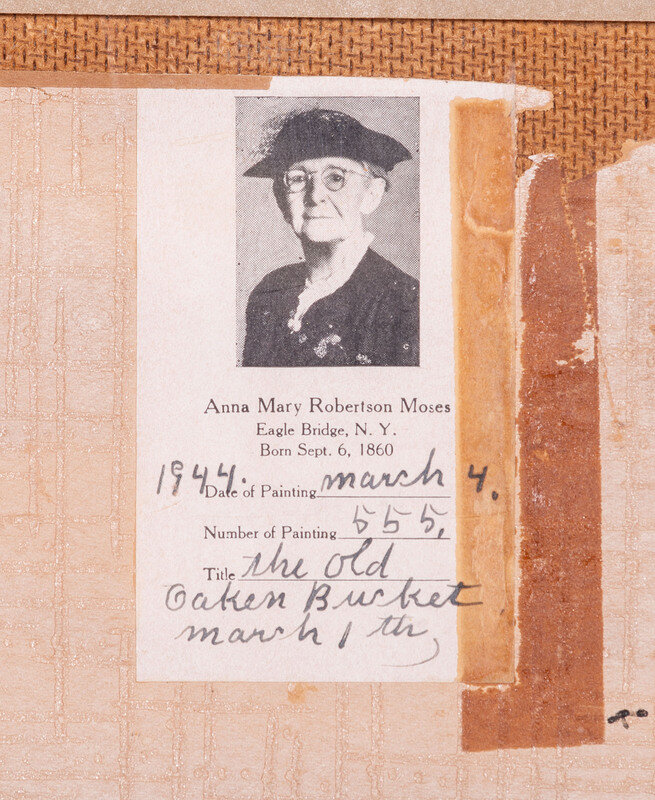 Anna Mary Robertson Moses
Eagle Bridge, N. Y.
Born Sept. 6, 1860
1944. Date of Painting march 4.
Number of Painting 555,
Title the old
Oaken Bucket
march 1 th,
To